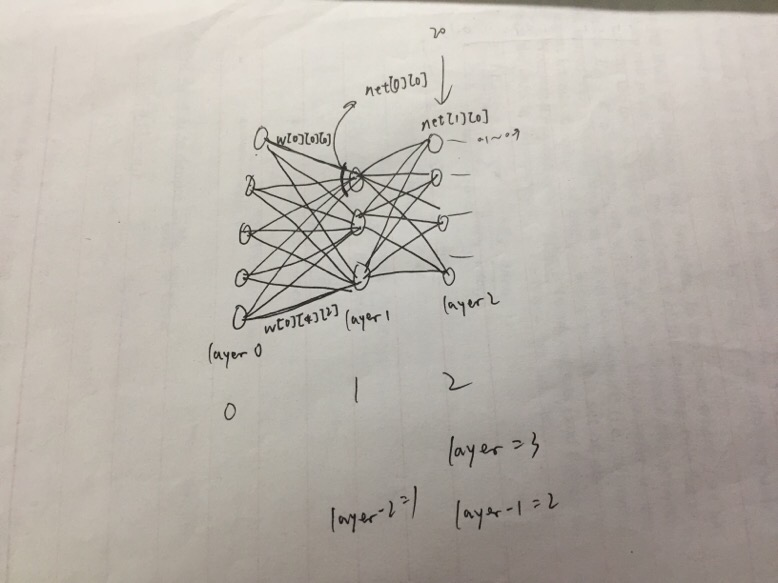 20
net[0][0]
net[1][0]
w[0][0][0]
w[0][4][2]
layer 1
layer 2
layer 0
0
1
2
layer = 3
layer-2=1
layer-1=2